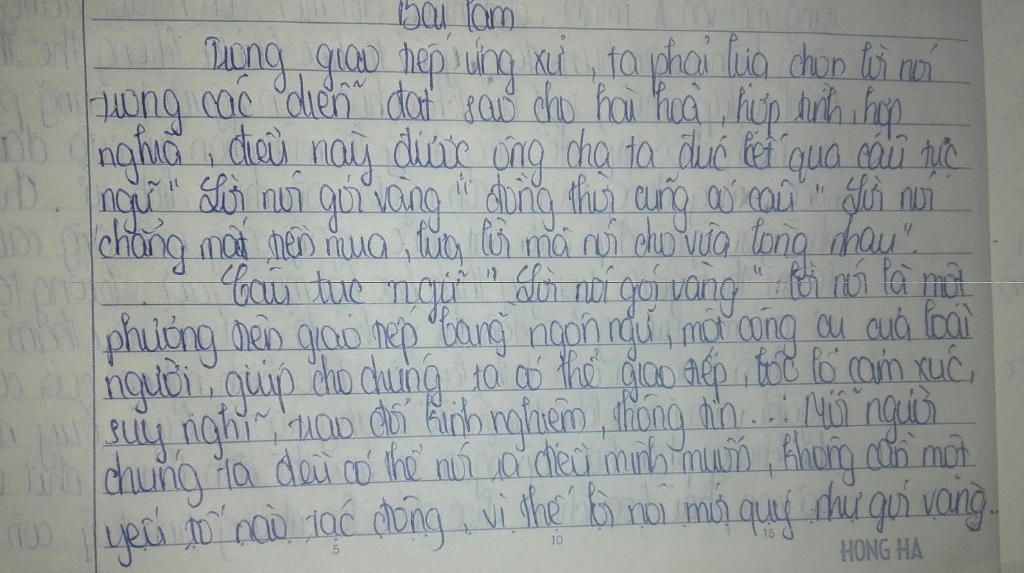 Bài làm
Trong giao tiếp ứng xử, ta phải lựa chọn lời nói
trong các diễn đạt sao cho hài hoà, hợp tình, hợp
nghĩa, điều này được ông cha ta đúc kết qua câu tục
ngữ "Lời nói gói vàng" đồng thời cũng có câu "Lời nói
chẳng mất tiền mua, lựa lời mà nói cho vừa lòng nhau".
Câu tục ngữ "Lời nói gói vàng" lời nói là một
phương tiện giao tiếp bằng ngôn ngữ, một công cụ của loài
người, giúp cho chúng ta có thể giao tiếp, bộc lộ cảm xúc,
suy nghĩ, trao đổi kinh nghiệm, thông tin... Mỗi người
chúng ta đều có thể nói ra điều mình muốn, không cần một
yếu tố nào tác động, vì thế lời nói mới quý như gói vàng..
5 10 15 HONG HA